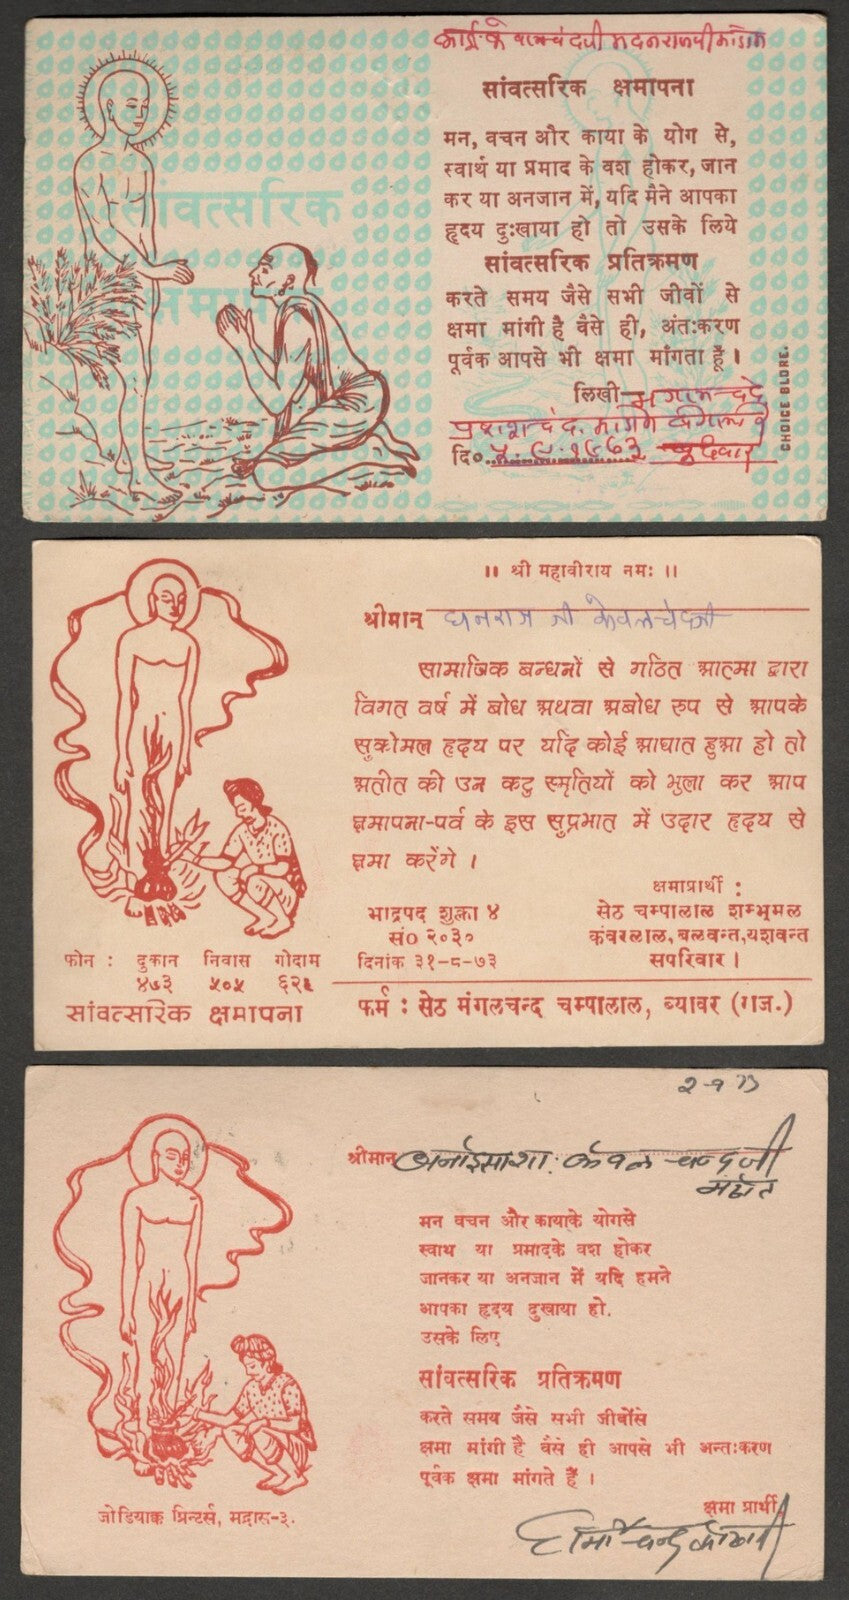 सांवत्सरिक
क्षमापना
सांवत्सरिक क्षमापना
मन, वचन और काया के योग से,
स्वार्थ या प्रमाद के वश होकर, जान
कर या अनजान में, यदि मैने आपका
हृदय दुःखाया हो तो उसके लिये
सांवत्सरिक प्रतिक्रमण
करते समय जैसे सभी जीवों से
क्षमा मांगी है वैसे ही, अंतःकरण
पूर्वक आपसे भी क्षमा मांगता हूँ ।
लिखी
दि० ५.९.१९६३
CHOICE BLORE.
॥ श्री महावीराय नमः ॥
श्रीमान् धनराज जी केवलचंदजी
सामाजिक बन्धनों से गठित आत्मा द्वारा
विगत वर्ष में बोध अथवा अबोध रुप से आपके
सुकोमल हृदय पर यदि कोई आघात हुआ हो तो
अतीत की उन कटु स्मृतियों को भुला कर आप
क्षमापना-पर्व के इस सुप्रभात में उदार हृदय से
क्षमा करेंगे ।
क्षमाप्रार्थी :
भाद्रपद शुक्ला ४ सेठ चम्पालाल शम्भूमल
सं० २०३० कंवरलाल, बलवन्त, यशवन्त
दिनांक ३१-८-७३ सपरिवार ।
फोन : दुकान निवास गोदाम
४७३ ५०५ ६२१
सांवत्सरिक क्षमापना
फर्म : सेठ मंगलचन्द चम्पालाल, ब्यावर (राज.)
२-९ 73
श्रीमान् केवल चन्दजी
मन वचन और कायाके योगसे
स्वाथ या प्रमादके वश होकर
जानकर या अनजान में यदि हमने
आपका हृदय दुखाया हो.
उसके लिए
सांवत्सरिक प्रतिक्रमण
करते समय जैसे सभी जीवोंसे
क्षमा मांगी है वैसे ही आपसे भी अन्तःकरण
पूर्वक क्षमा मांगते हैं ।
क्षमा प्रार्थी,
जोडियाक प्रिन्टर्स, मद्रास-३.